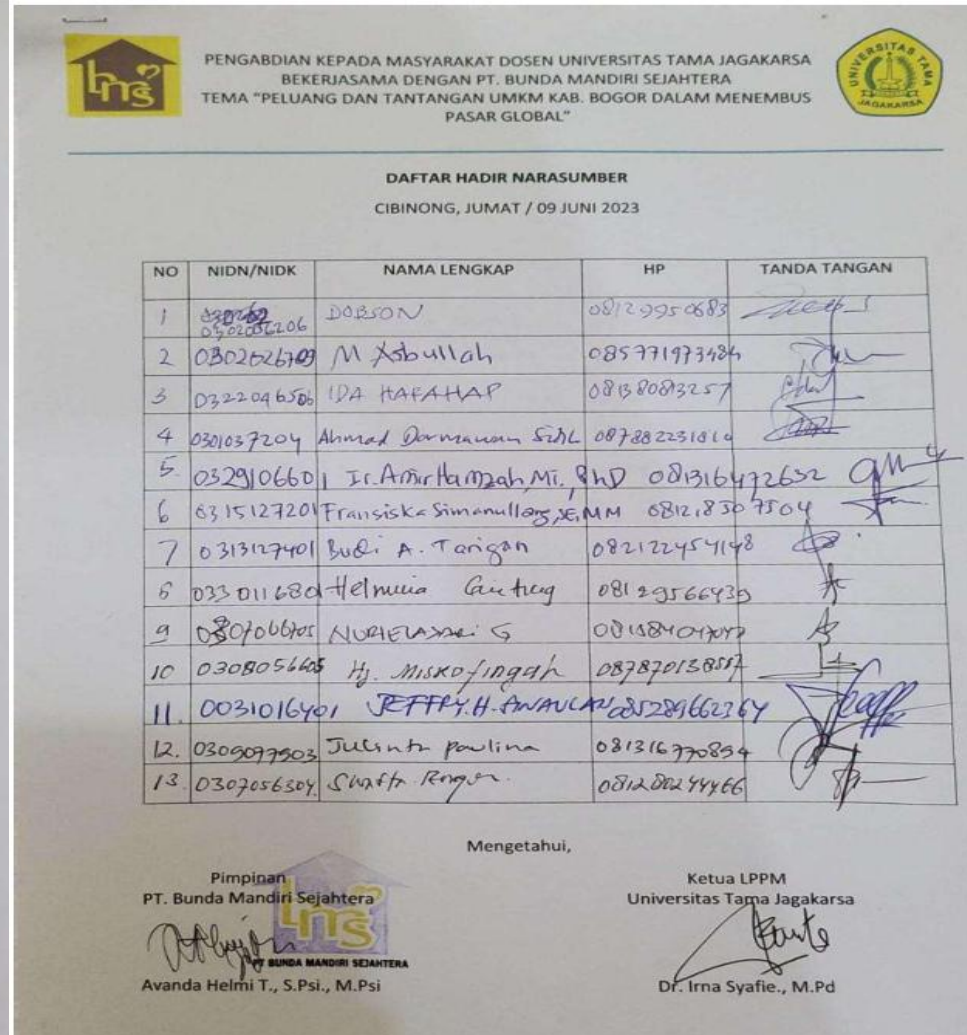 PENGABDIAN KEPADA MASYARAKAT DOSEN UNIVERSITAS TAMA JAGAKARSA
BEKERJASAMA DENGAN PT. BUNDA MANDIRI SEJAHTERA
TEMA "PELUANG DAN TANTANGAN UMKM KAB. BOGOR DALAM MENEMBUS
PASAR GLOBAL"
bms
UNIVERSITAS TAMA
JAGAKARSA
DAFTAR HADIR NARASUMBER
CIBINONG, JUMAT / 09 JUNI 2023
NO NIDN/NIDK NAMA LENGKAP HP TANDA TANGAN
1 0302086206 DOBSON 081299950683
2 M Asbullah 085771973484
3 0322046506 IDA HARAHAP 081380813257
4 0301037204 Ahmad Darmawan
5. 0329106601 Ir. Amir Hamzah, Mi. PhD 081316472652
6 0315127201 Fransiska Simanullang, SE, MM 081218307504
7 0313127401 Budi A. Tarigan 082122454148
8 0330116801 Helmina 08129566439
9
10 0308056605 Hj. 087870138557
11. 0031016401 JEFFRY. H. 085289662364
12. 0309077903 paulina 081316770894
13. 0307056304 081280244466
Mengetahui,
Pimpinan
PT. Bunda Mandiri Sejahtera
bms
PT BUNDA MANDIRI SEJAHTERA
Avanda Helmi T., S.Psi., M.Psi
Ketua LPPM
Universitas Tama Jagakarsa
Dr. Irna Syafie., M.Pd